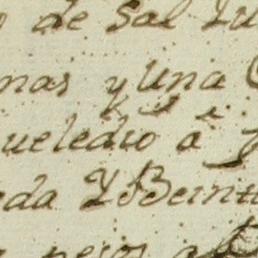 de Sal Y
nas y Una
ueledio a
da Y Bein
pesos